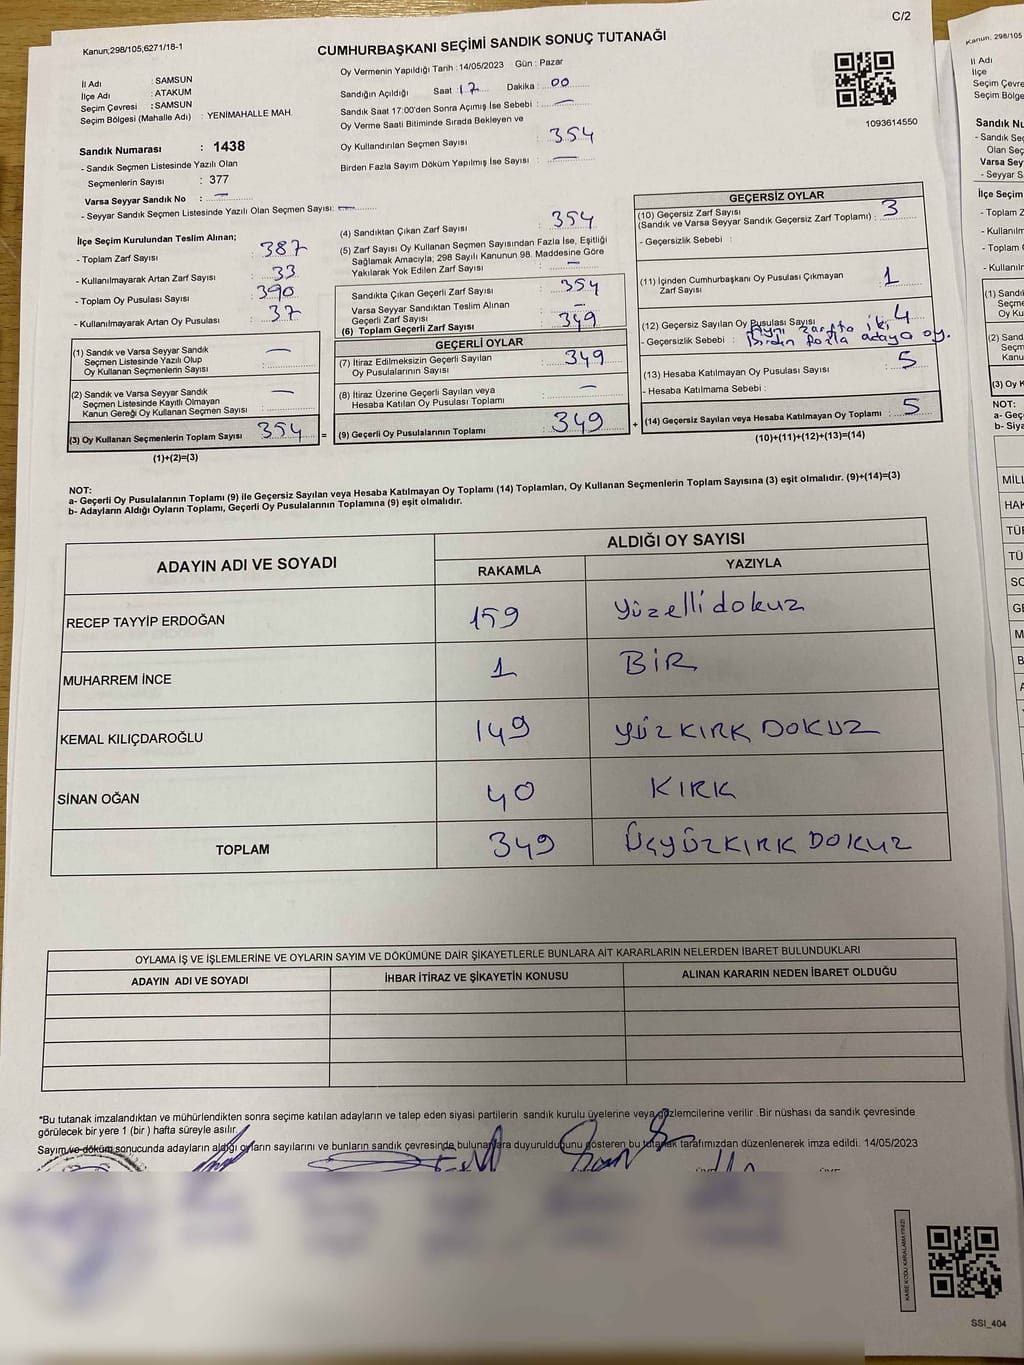 C/2
Kanun;298/105;6271/18-1
CUMHURBAŞKANI SEÇİMİ SANDIK SONUÇ TUTANAĞI
İl Adı : SAMSUN
İlçe Adı : ATAKUM
Seçim Çevresi : SAMSUN
Seçim Bölgesi (Mahalle Adı) : YENİMAHALLE MAH.
Sandık Numarası : 1438
- Sandık Seçmen Listesinde Yazılı Olan
Seçmenlerin Sayısı : 377
Varsa Seyyar Sandık No : —
- Seyyar Sandık Seçmen Listesinde Yazılı Olan Seçmen Sayısı: —
Oy Vermenin Yapıldığı Tarih : 14/05/2023 Gün : Pazar
Sandığın Açıldığı Saat : 17 Dakika : 00
Sandık Saat 17:00'den Sonra Açımış İse Sebebi : —
Oy Verme Saati Bitiminde Sırada Bekleyen ve
Oy Kullandırılan Seçmen Sayısı : 354
Birden Fazla Sayım Döküm Yapılmış İse Sayısı : —
1093614550
İlçe Seçim Kurulundan Teslim Alınan;
- Toplam Zarf Sayısı : 387
- Kullanılmayarak Artan Zarf Sayısı : 33
- Toplam Oy Pusulası Sayısı : 390
- Kullanılmayarak Artan Oy Pusulası : 37
(1) Sandık ve Varsa Seyyar Sandık
Seçmen Listesinde Yazılı Olup
Oy Kullanan Seçmenlerin Sayısı : —
(2) Sandık ve Varsa Seyyar Sandık
Seçmen Listesinde Kayıtlı Olmayan
Kanun Gereği Oy Kullanan Seçmen Sayısı : —
(3) Oy Kullanan Seçmenlerin Toplam Sayısı 354 =
(1)+(2)=(3)
(4) Sandıktan Çıkan Zarf Sayısı : 354
(5) Zarf Sayısı Oy Kullanan Seçmen Sayısından Fazla İse, Eşitliği
Sağlamak Amacıyla; 298 Sayılı Kanunun 98. Maddesine Göre
Yakılarak Yok Edilen Zarf Sayısı : —
Sandıkta Çıkan Geçerli Zarf Sayısı : 354
Varsa Seyyar Sandıktan Teslim Alınan
Geçerli Zarf Sayısı : —
(6) Toplam Geçerli Zarf Sayısı : 349
GEÇERLİ OYLAR
(7) İtiraz Edilmeksizin Geçerli Sayılan
Oy Pusulalarının Sayısı : 349
(8) İtiraz Üzerine Geçerli Sayılan veya
Hesaba Katılan Oy Pusulası Toplamı : —
(9) Geçerli Oy Pusulalarının Toplamı : 349 +
GEÇERSİZ OYLAR
(10) Geçersiz Zarf Sayısı
(Sandık ve Varsa Seyyar Sandık Geçersiz Zarf Toplamı) : 3
- Geçersizlik Sebebi :
(11) İçinden Cumhurbaşkanı Oy Pusulası Çıkmayan
Zarf Sayısı : 1
(12) Geçersiz Sayılan Oy Pusulası Sayısı : 4
- Geçersizlik Sebebi : Aynı zarfta iki
Birden fazla adaya oy.
(13) Hesaba Katılmayan Oy Pusulası Sayısı : 5
- Hesaba Katılmama Sebebi :
(14) Geçersiz Sayılan veya Hesaba Katılmayan Oy Toplamı : 5
(10)+(11)+(12)+(13)=(14)
NOT:
a- Geçerli Oy Pusulalarının Toplamı (9) ile Geçersiz Sayılan veya Hesaba Katılmayan Oy Toplamı (14) Toplamları, Oy Kullanan Seçmenlerin Toplam Sayısına (3) eşit olmalıdır. (9)+(14)=(3)
b- Adayların Aldığı Oyların Toplamı, Geçerli Oy Pusulalarının Toplamına (9) eşit olmalıdır.
ADAYIN ADI VE SOYADI
ALDIĞI OY SAYISI
RAKAMLA YAZIYLA
RECEP TAYYİP ERDOĞAN 159 yüzellidokuz
MUHARREM İNCE 1 BİR
KEMAL KILIÇDAROĞLU 149 YÜZKIRK DOKUZ
SİNAN OĞAN 40 KIRK
TOPLAM 349 ÜÇYÜZKIRK DOKUZ
OYLAMA İŞ VE İŞLEMLERİNE VE OYLARIN SAYIM VE DÖKÜMÜNE DAİR ŞİKAYETLERLE BUNLARA AİT KARARLARIN NELERDEN İBARET BULUNDUKLARI
ADAYIN ADI VE SOYADI İHBAR İTİRAZ VE ŞİKAYETİN KONUSU ALINAN KARARIN NEDEN İBARET OLDUĞU
*Bu tutanak imzalandıktan ve mühürlendikten sonra seçime katılan adayların ve talep eden siyasi partilerin sandık kurulu üyelerine veya gözlemcilerine verilir .Bir nüshası da sandık çevresinde
görülecek bir yere 1 (bir ) hafta süreyle asılır.
Sayım ve döküm sonucunda adayların aldığı oyların sayılarını ve bunların sandık çevresinde bulunanlara duyurulduğunu gösteren bu tutanak tarafımızdan düzenlenerek imza edildi. 14/05/2023
KARE KODU KARALAMAYINIZ!
SSI_404
Kanun; 298/105
İl Adı
İlçe
Seçim Çevre
Seçim Bölge